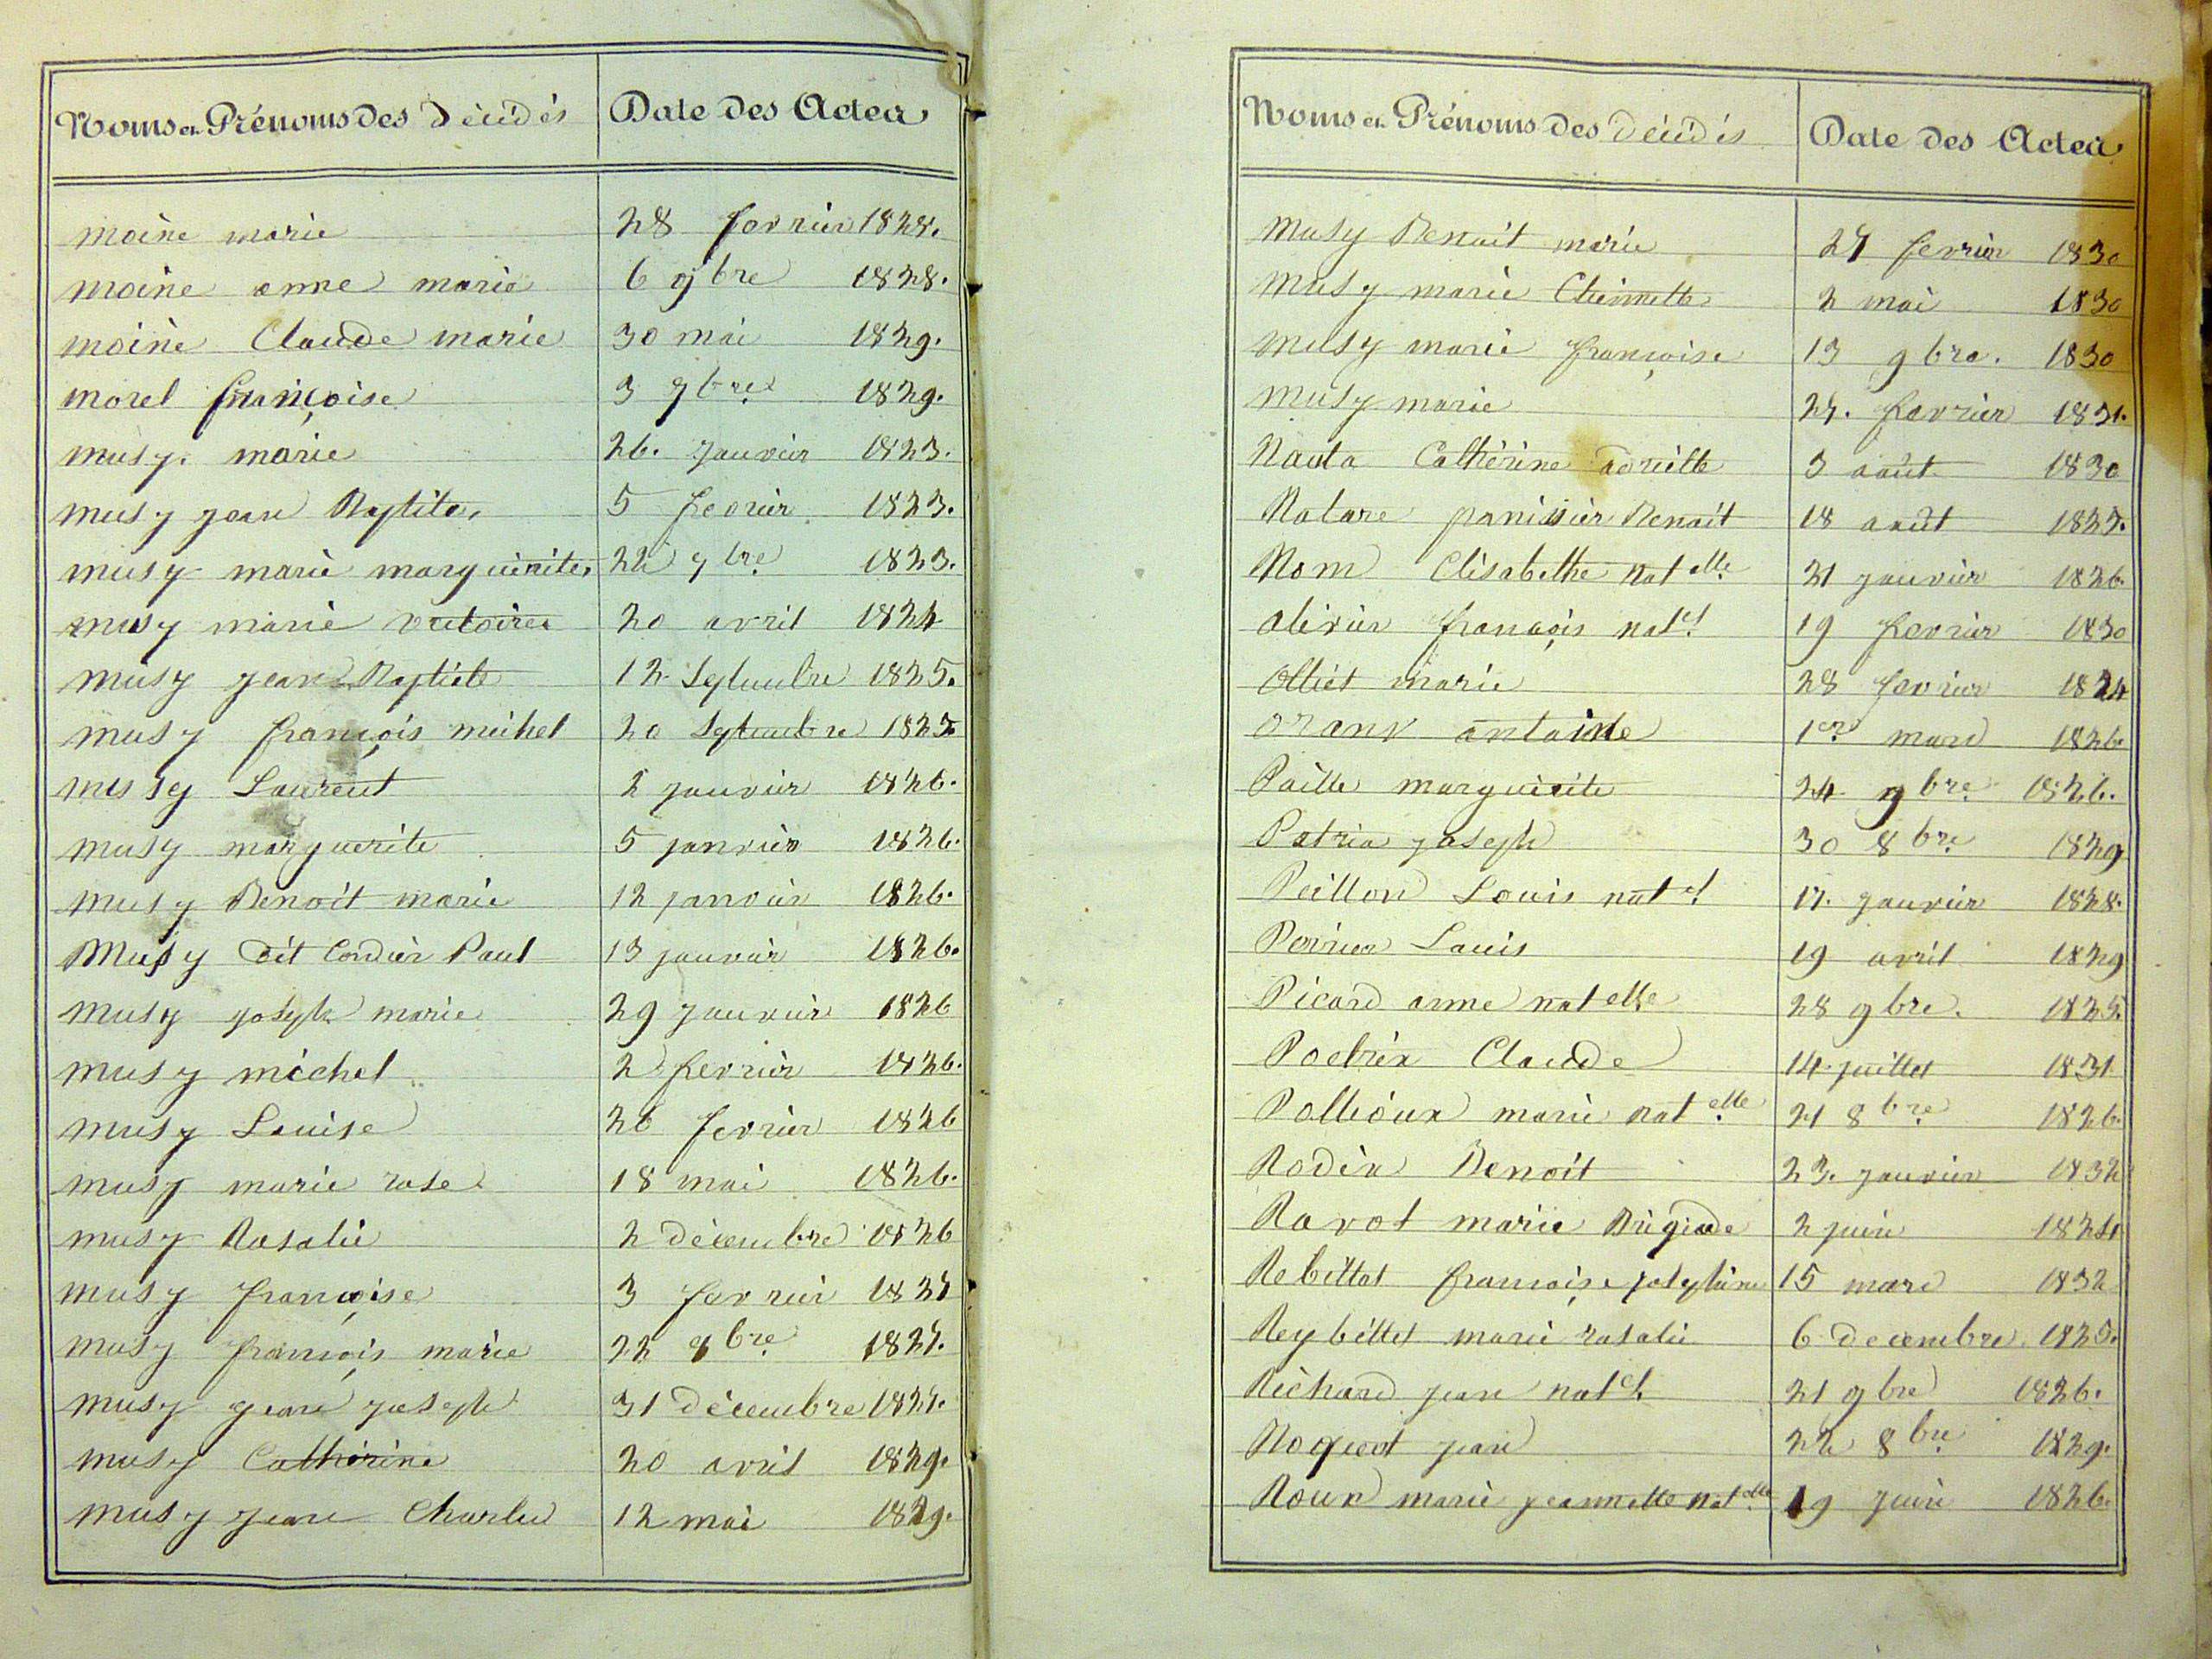 Noms et Prénoms des décédés Date des Actes
moine marie 28 fevrier 1828.
moine anne marie 6 9bre 1828.
moine Claude marie 30 mai 1829.
morel françoise 3 9bre 1829.
musy. marie 26. janvier 1823.
musy jean Baptite, 5 fevrier 1823.
musy marie marguerite, 22 9bre 1823.
musy marie victoire 20 avril 1824
musy jean Baptiste 12 Septembre 1825.
musy françois michel 20 Septembre 1825
musy Laurent 2 janvier 1826.
musy marguerite 5 janvier 1826.
musy Benoit marie 12 janvier 1826.
Musy dit Cordier Paul 13 janvier 1826.
musy joseph marie 29 janvier 1826
musy michel 2 fevrier 1826.
musy Louise 26 fevrier 1826
musy marie rose 18 mai 1826.
musy Rosalie 2 décembre 1826
musy françoise 3 fevrier 1827
musy françois marie 22 9bre 1827.
musy jean joseph 31 décembre 1827.
musy Catherine 20 avril 1829.
musy jean Charles 12 mai 1829.
Noms et Prénoms des décédés Date des Actes
Musy Benoit marie 27 fevrier 1830
Musy marie 2 mai 1830
Musy marie françoise 13 9bre. 1830
Musy marie 27. fevrier 1831.
Catherine 3 août 1830
Benoit 18 août
Nom Elisabethe natelle 21 janvier 1826.
olivier françois natel 19 fevrier 1830
Olliet marie 28 fevrier 1824
antoine 1er mars 1826.
Paille marguerite 24 9bre 1826.
joseph 30 8bre 1829
Peillon Louis natel 17. janvier 1828.
Louis 19 avril 1829
Picard anne natelle 28 9bre. 1825.
Claude 14 juillet 1831
marie natelle 21 8bre 1826.
Rodix Benoit 23. janvier 1832
Ravot marie Brigide 2 juin 1824
Rebillet françoise josephine 15 mars 1832
Reybillet marie rosalie 6 decembre 1825.
Richard jean natel 21 9bre 1826.
Roquet jean 22 8bre 1829.
Roux marie jeannette natelle 19 juin 1826.